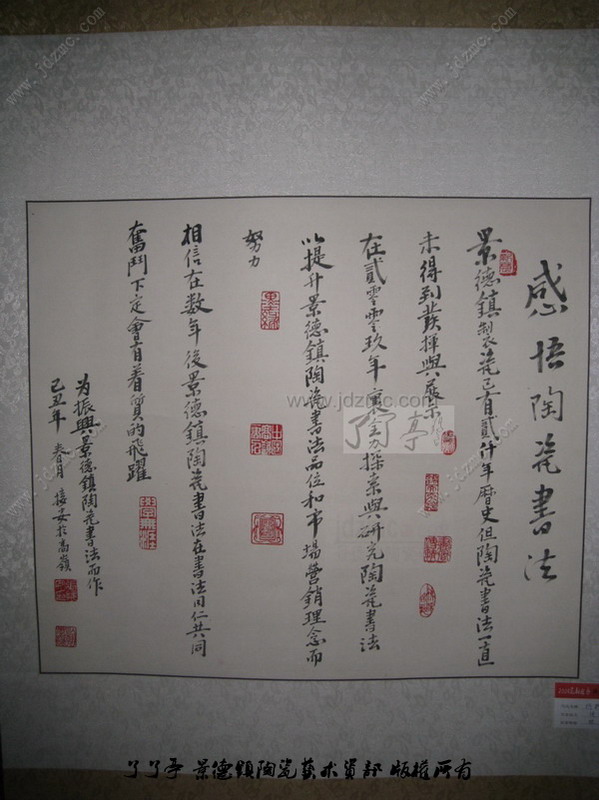 感悟陶瓷書法
景德鎮製瓷已有貳仟年曆史但陶瓷書法一直
未得到發揮與發
在貳零零玖年 全力探索與研究陶瓷書法
以提升景德鎮陶瓷書法品位和市場營銷理念而
努力
相信在数年後景德鎮陶瓷書法在書法同仁共同
奮鬥下定會有着質的飛躍
为振興景德鎮陶瓷書法而作
己丑年 春月 於高嶺
www.jdzmc.com
了了亭
了了亭 景德鎮陶瓷藝术資訊 版權所有